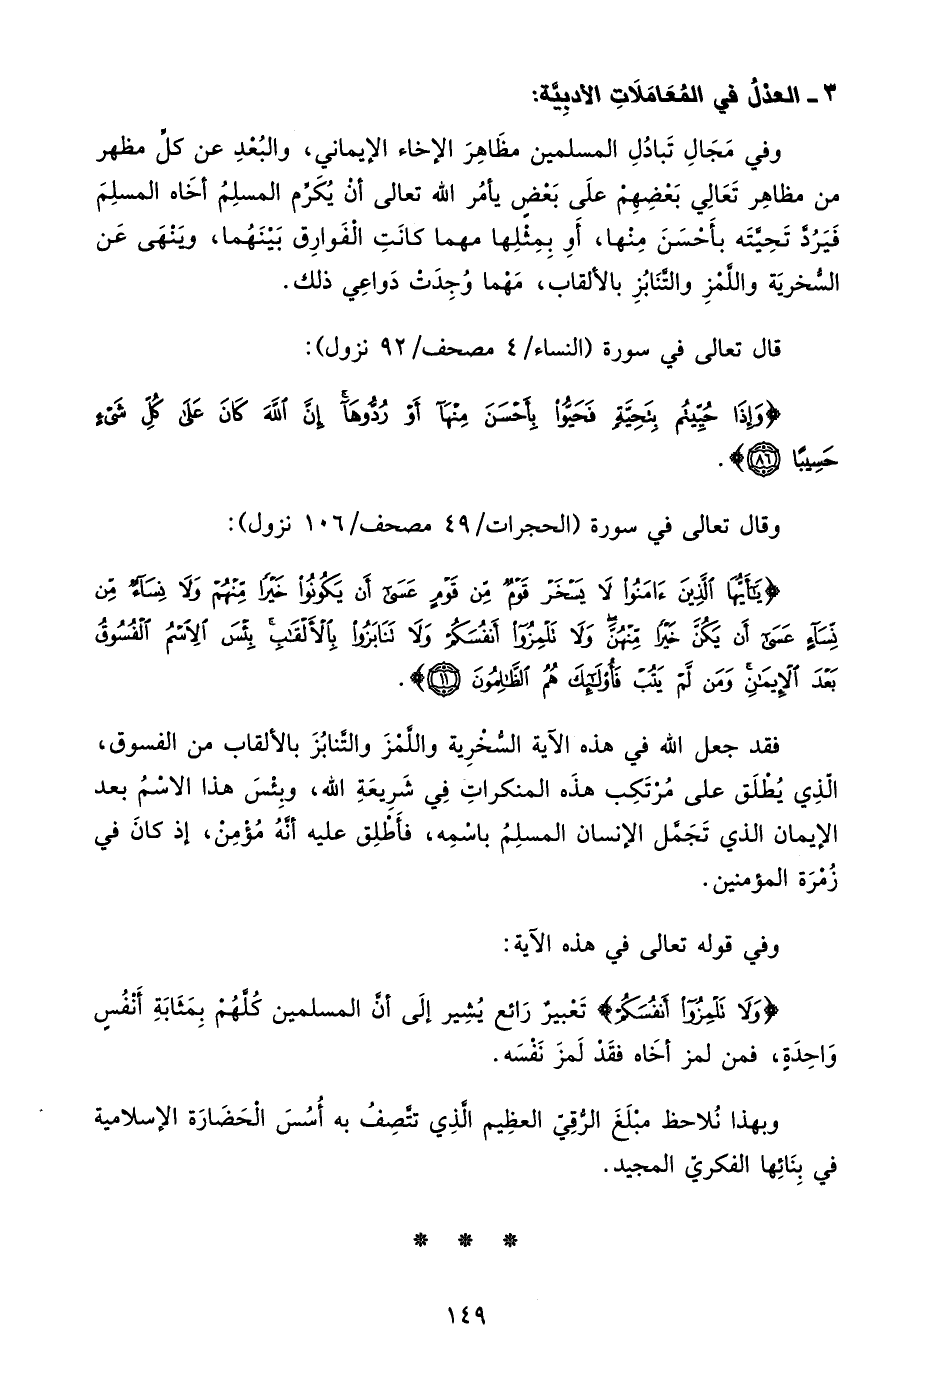 ٣ ـ العدْلُ في المُعَامَلَاتِ الأدبِيَّة:
وفي مَجَالِ تَبادُلِ المسلمين مظَاهِرَ الإخاء الإيماني، والبُعْدِ عن كلِّ مظهر
من مظاهِر تَعَالِي بَعْضِهِمْ علَى بَعْضٍ يأمُر الله تعالى أنْ يُكَرِّم المسلمُ أخَاه المسلمَ
فَيَرُدَّ تَحِيَّتَه بأحْسَنَ مِنْها، أَو بِمِثْلِها مهما كانَتِ الْفَوارِق بَيْنَهُما، وينْهَى عَن
السُّخريَة واللَّمْزِ والتَّنَابُزِ بالألقاب، مَهْما وُجِدَتْ دَواعِي ذلك.
قال تعالى في سورة (النساء/ ٤ مصحف/ ٩٢ نزول):
﴿وَإِذَا حُيِّيتُم بِتَحِيَّةٍ فَحَيُّوا۟ بِأَحْسَنَ مِنْهَآ أَوْ رُدُّوهَآ ۗ إِنَّ ٱللَّهَ كَانَ عَلَىٰ كُلِّ شَىْءٍ
حَسِيبًا ٨٦﴾.
وقال تعالى في سورة (الحجرات/ ٤٩ مصحف/ ١٠٦ نزول):
﴿يَٰٓأَيُّهَا ٱلَّذِينَ ءَامَنُوا۟ لَا يَسْخَرْ قَوْمٌ مِّن قَوْمٍ عَسَىٰٓ أَن يَكُونُوا۟ خَيْرًا مِّنْهُمْ وَلَا نِسَآءٌ مِّن
نِّسَآءٍ عَسَىٰٓ أَن يَكُنَّ خَيْرًا مِّنْهُنَّ ۖ وَلَا تَلْمِزُوٓا۟ أَنفُسَكُمْ وَلَا تَنَابَزُوا۟ بِٱلْأَلْقَٰبِ ۖ بِئْسَ ٱلِٱسْمُ ٱلْفُسُوقُ
بَعْدَ ٱلْإِيمَٰنِ ۚ وَمَن لَّمْ يَتُبْ فَأُو۟لَٰٓئِكَ هُمُ ٱلظَّٰلِمُونَ ١١﴾.
فقد جعل الله في هذه الآية السُّخْرِية واللَّمْزَ والتَّنابُزَ بالألقاب من الفسوق،
الّذِي يُطْلَق على مُرْتَكِب هذَه المنكراتِ فِي شَرِيعَةِ الله، وبِئْسَ هذا الاسْمُ بعد
الإيمان الذي تَجَمَّل الإنسان المسلِمُ باسْمِه، فأَطْلِق عليه أنَّهُ مُؤْمِنْ، إذ كانَ في
زُمْرَة المؤمنين.
وفي قوله تعالى في هذه الآية:
﴿وَلَا تَلْمِزُوٓا۟ أَنفُسَكُمْ﴾ تَعْبيرٌ رَائع يُشِير إلَى أنَّ المسلمين كُلَّهُمْ بِمَثَابَةِ أَنْفُسٍ
وَاحِدَةٍ، فمن لمز أخَاه فقَدْ لَمزَ نَفْسَه.
وبهذا نُلاحظ مبْلَغَ الرُّقِيّ العظِيم الَّذِي تتَّصِفُ به أُسُسَ الْحَضَارَة الإسلامية
في بِنَائِها الفكريّ المجيد.
* * *
١٤٩